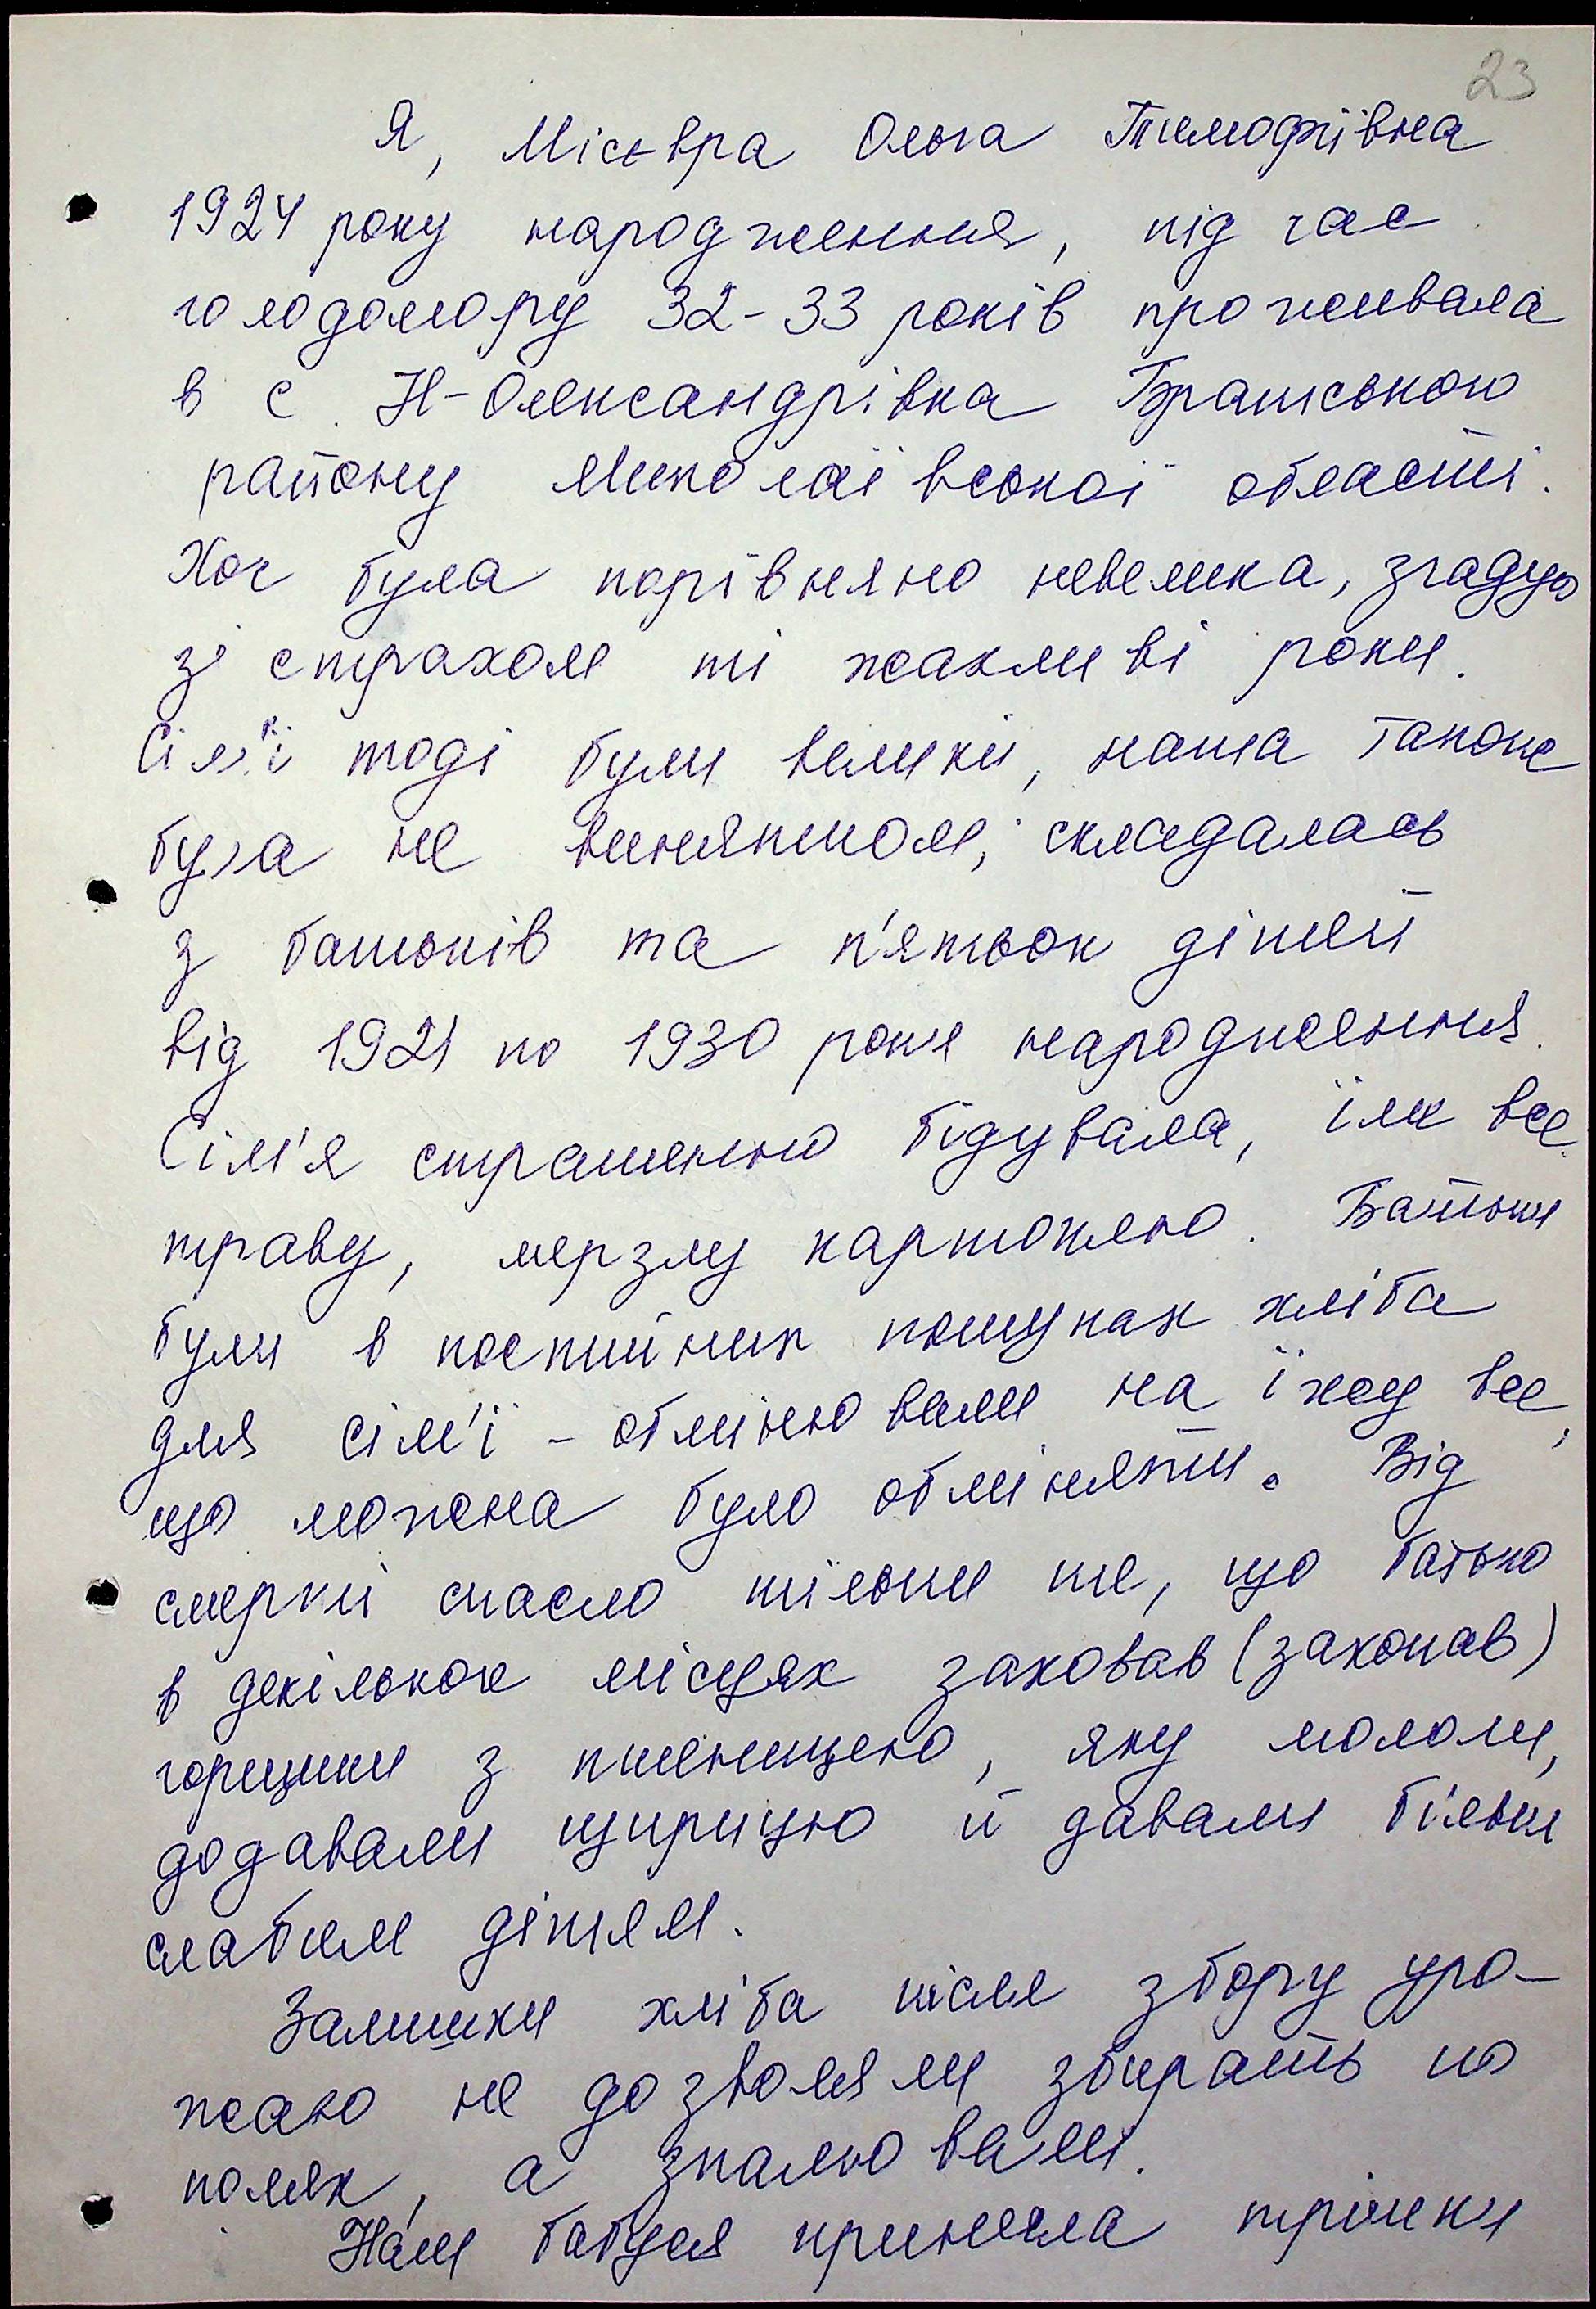 23
Я, Місевра Ольга Тимофіївна
1924 року народження, під час
голодомору 32-33 років проживала
в с. Н-Олександрівка Братського
району Миколаївської області.
Хоч була порівняно невелика, згадую
зі страхом ті жахливі роки.
Сім'ї тоді були великі, наша також
була не винятком, складалась
з батьків та п'ятьох дітей
від 1921 по 1930 роки народження.
Сім'я страшенно бідувала, їли все
траву, мерзлу картоплю. Батьки
були в постійних пошуках хліба
для сім'ї - обмінювали на їжу все,
що можна було обміняти. Від
смерті спасло тільки те, що батько
в декількох місцях заховав (закопав)
горщики з пшеницею, яку мололи,
додавали щирицю й давали більш
слабим дітям.
Залишки хліба після збору уро-
жаю не дозволяли збирать по
полях, а спалювали.
Нам бабуся принесла трішки